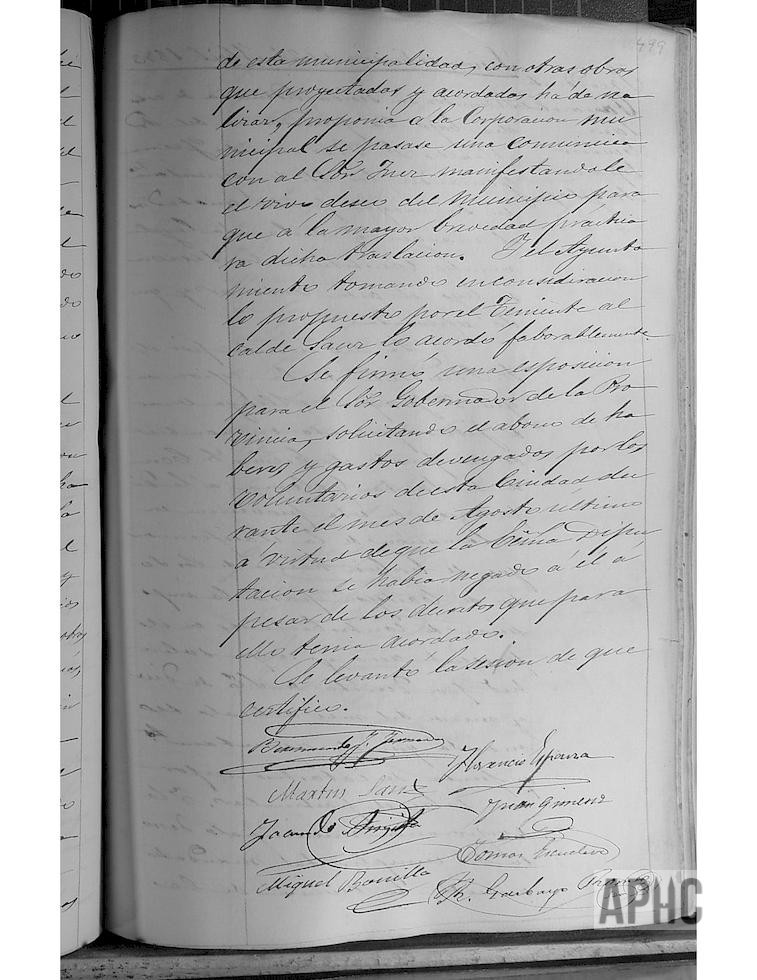 499
de esta municipalidad, con otras obras
que proyectadas y acordadas ha de rea
lizar, proponia a la Corporacion mu
nicipal se pasase una comunica
con al Sor. Juez manifestandole
el vivo deseo del Municipio para
que á la mayor brevedad practica
ra dicha traslacion. I el Ayunta
miento tomando en consideracion
lo propuesto por el Teniente al
calde Sanz lo acordó faborablemente.
Se firmó una esposicion
para el Sor. Gobernador de la Pro
vincia, solicitando el abono de ha
beres y gastos devengados por los
Voluntarios de esta Ciudad du
rante el mes de Agosto último
á virtud de que la Dipu
tacion se habia negado á él á
pesar de los decretos que para
ello tenia acordado.
Se levantó la sesion de que
certifico.
Florencio Esparza
Martin Sanz
Juan Gimenez
Tomas Escudero
Miguel Bonilla
APHC